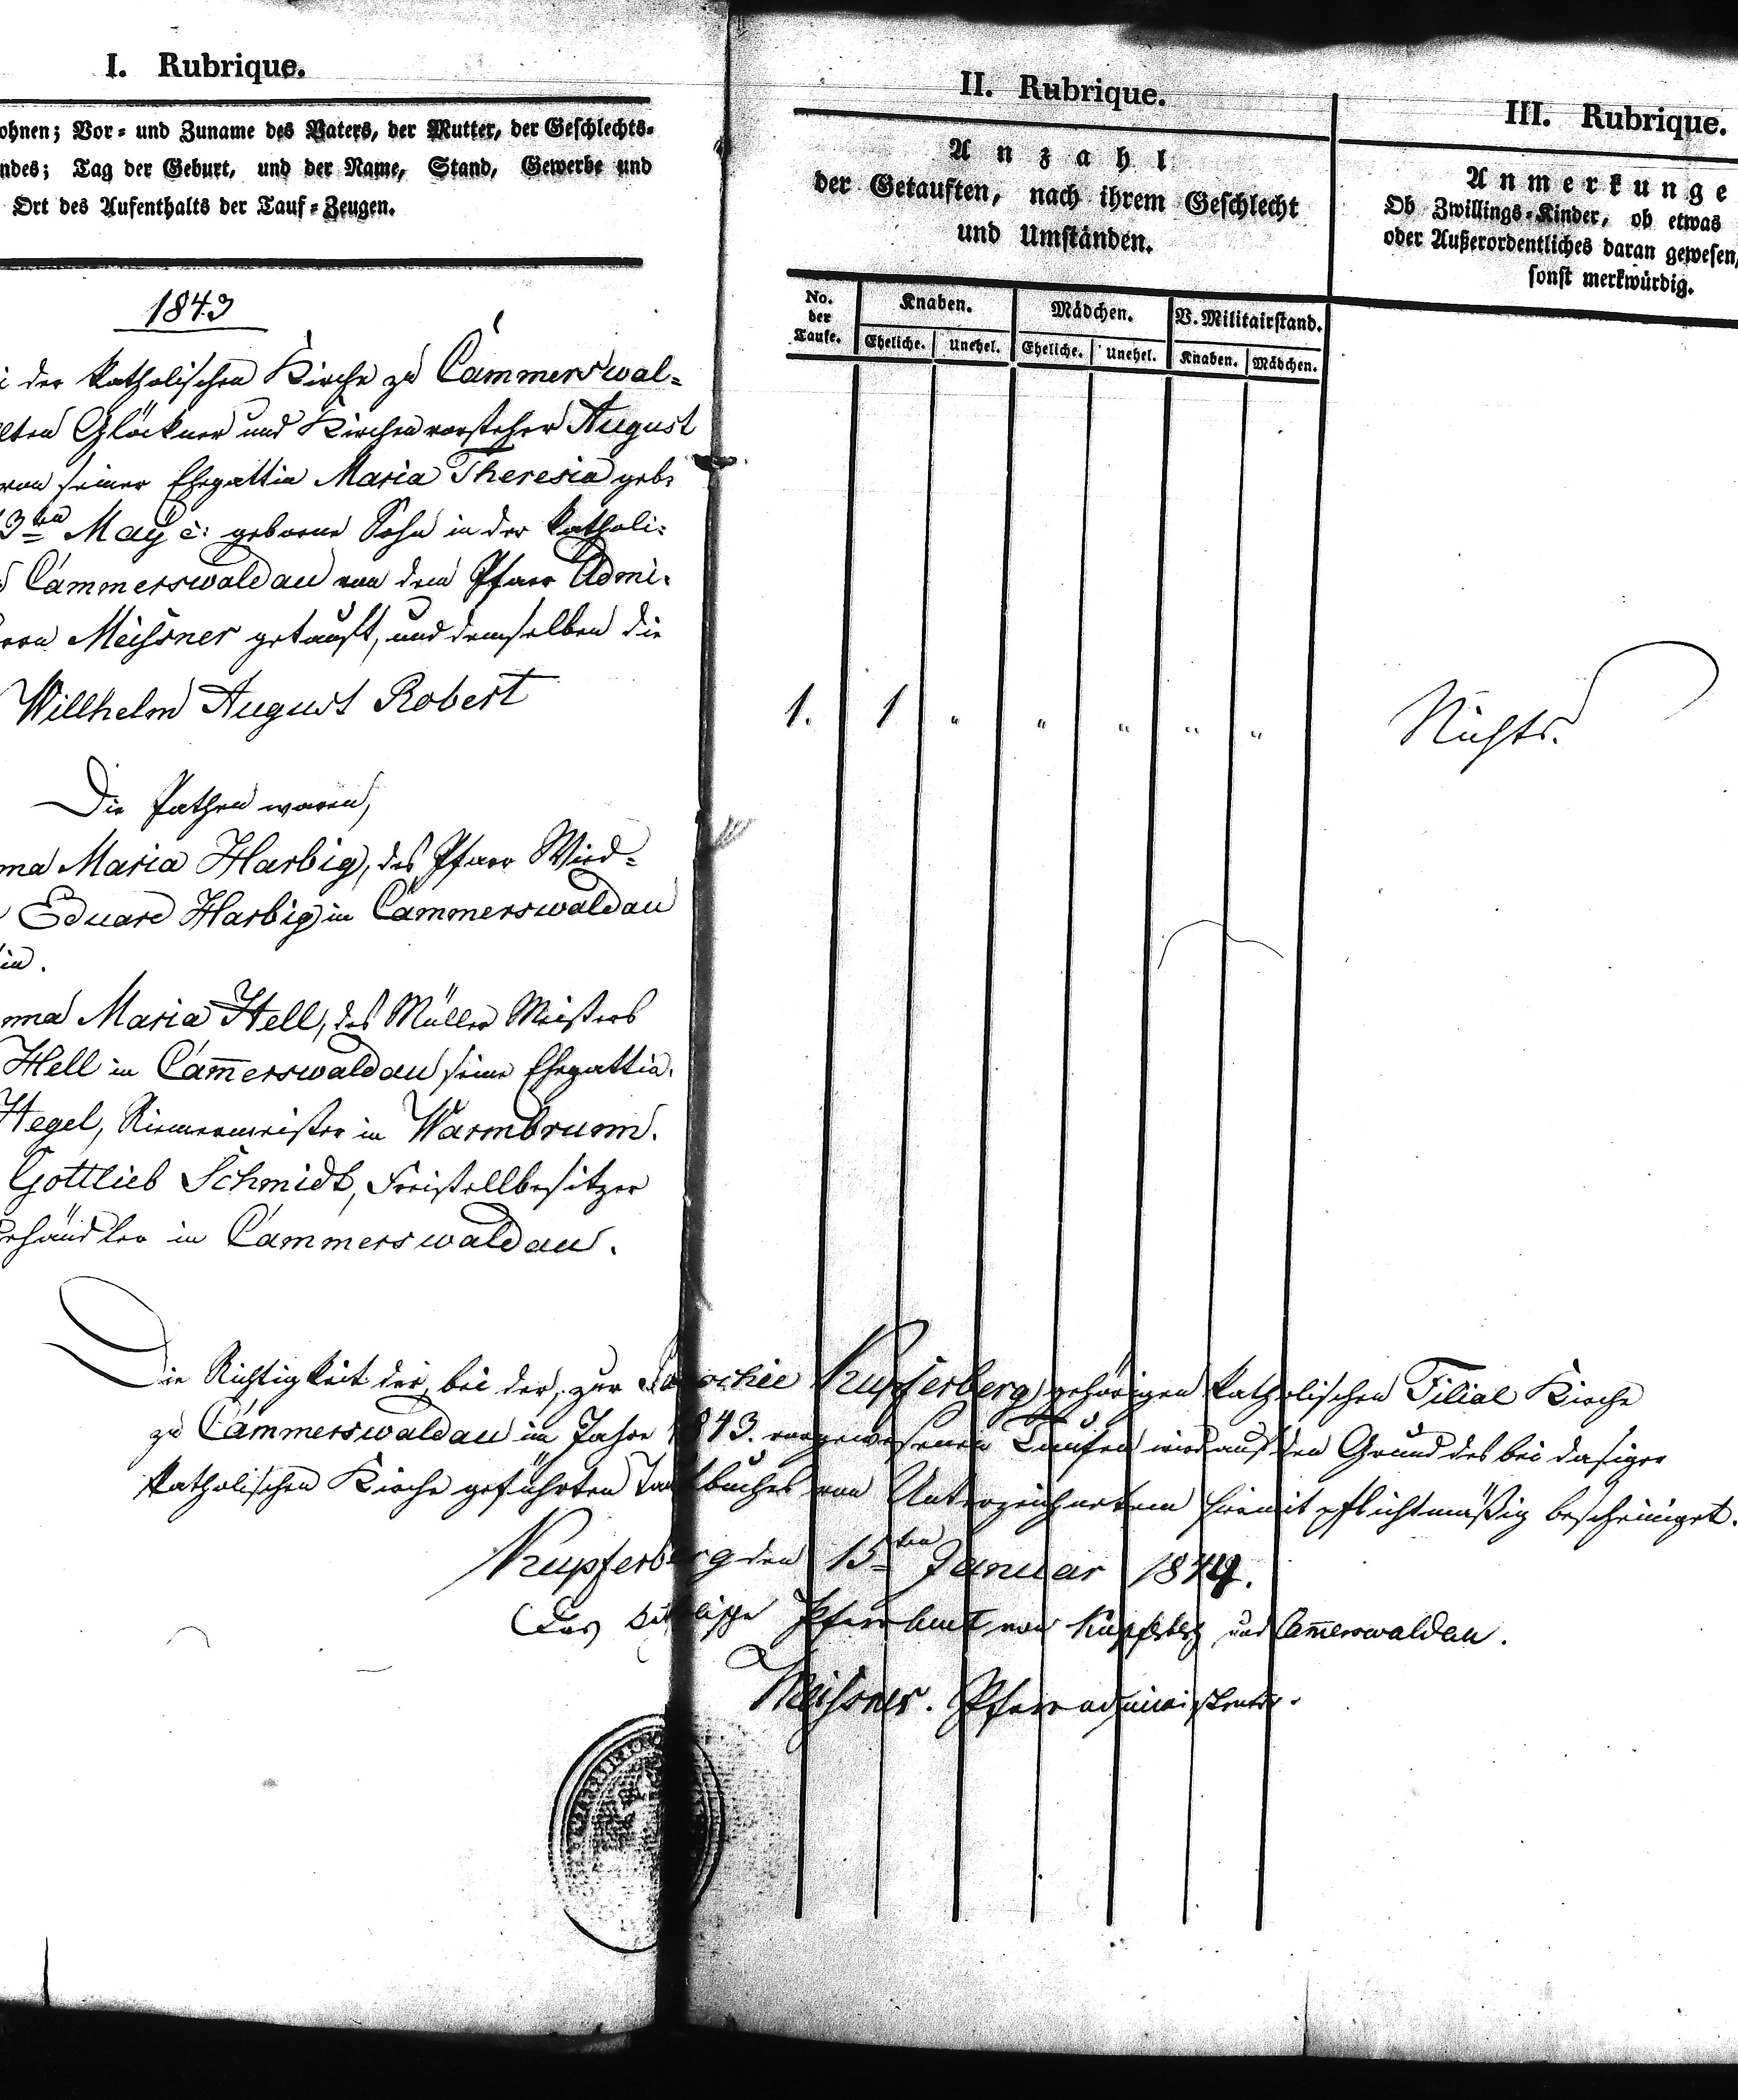 I. Rubrique.
ohnen; Vor- und Zuname des Vaters, der Mutter, der Geschlechts-
ndes; Tag der Geburt, und der Name, Stand, Gewerbe und
Ort des Aufenthalts der Tauf-Zeugen.
1843
i der katholischen Kirche zu Cammerswal-
llten Glöckner und Kirchenvorsteher August
von seiner Ehegattin Maria Theresia geb:
13ten May c: geborne Sohn in der katholi-
Cammerswaldau von dem Pfarr Admi-
errn Meissner getauft, und demselben die
Willhelm August Robert
Die Pathen waren,
nna Maria Harbig, des Pfarr Wied-
Eduard Harbig in Cammerswaldau
in.
nna Maria Hell, des Müller Meisters
Hell in Cam̅erswaldau seine Ehegattin.
Hegel, Riemermeister in Warmbrunn.
Gottlieb Schmidt, Freistellbesitzer
ehändler in Cammerswaldau.
II. Rubrique.
Anzahl
der Getauften, nach ihrem Geschlecht
und Umständen.
No. der Taufe. Knaben. Mädchen. V. Militairstand.
Eheliche. Unehel. Eheliche. Unehel. Knaben. Mädchen.
1. 1 " " " " "
III. Rubrique.
Anmerkunge
Ob Zwillings-Kinder, ob etwas
oder Außerordentliches daran gewesen,
sonst merkwürdig.
Nichts.
Die Richtigkeit der, bei der, zur Parochie Kupferberg gehörigen katholischen Filial Kirche
zu Cammerswaldau im Jahre 1843. vorgewesenen Taufen wird auf den Grund des bei dasiger
katholischen Kirche geführten Taufbuches von Unterzeichnetem hiemit pflichtmäßig bescheiniget.
Kupferberg den 15ten Januar 1844.
Das katholische Pfarramt von Kupferberg und Cam̅erswaldau.
Meissner. Pfarradministrator.